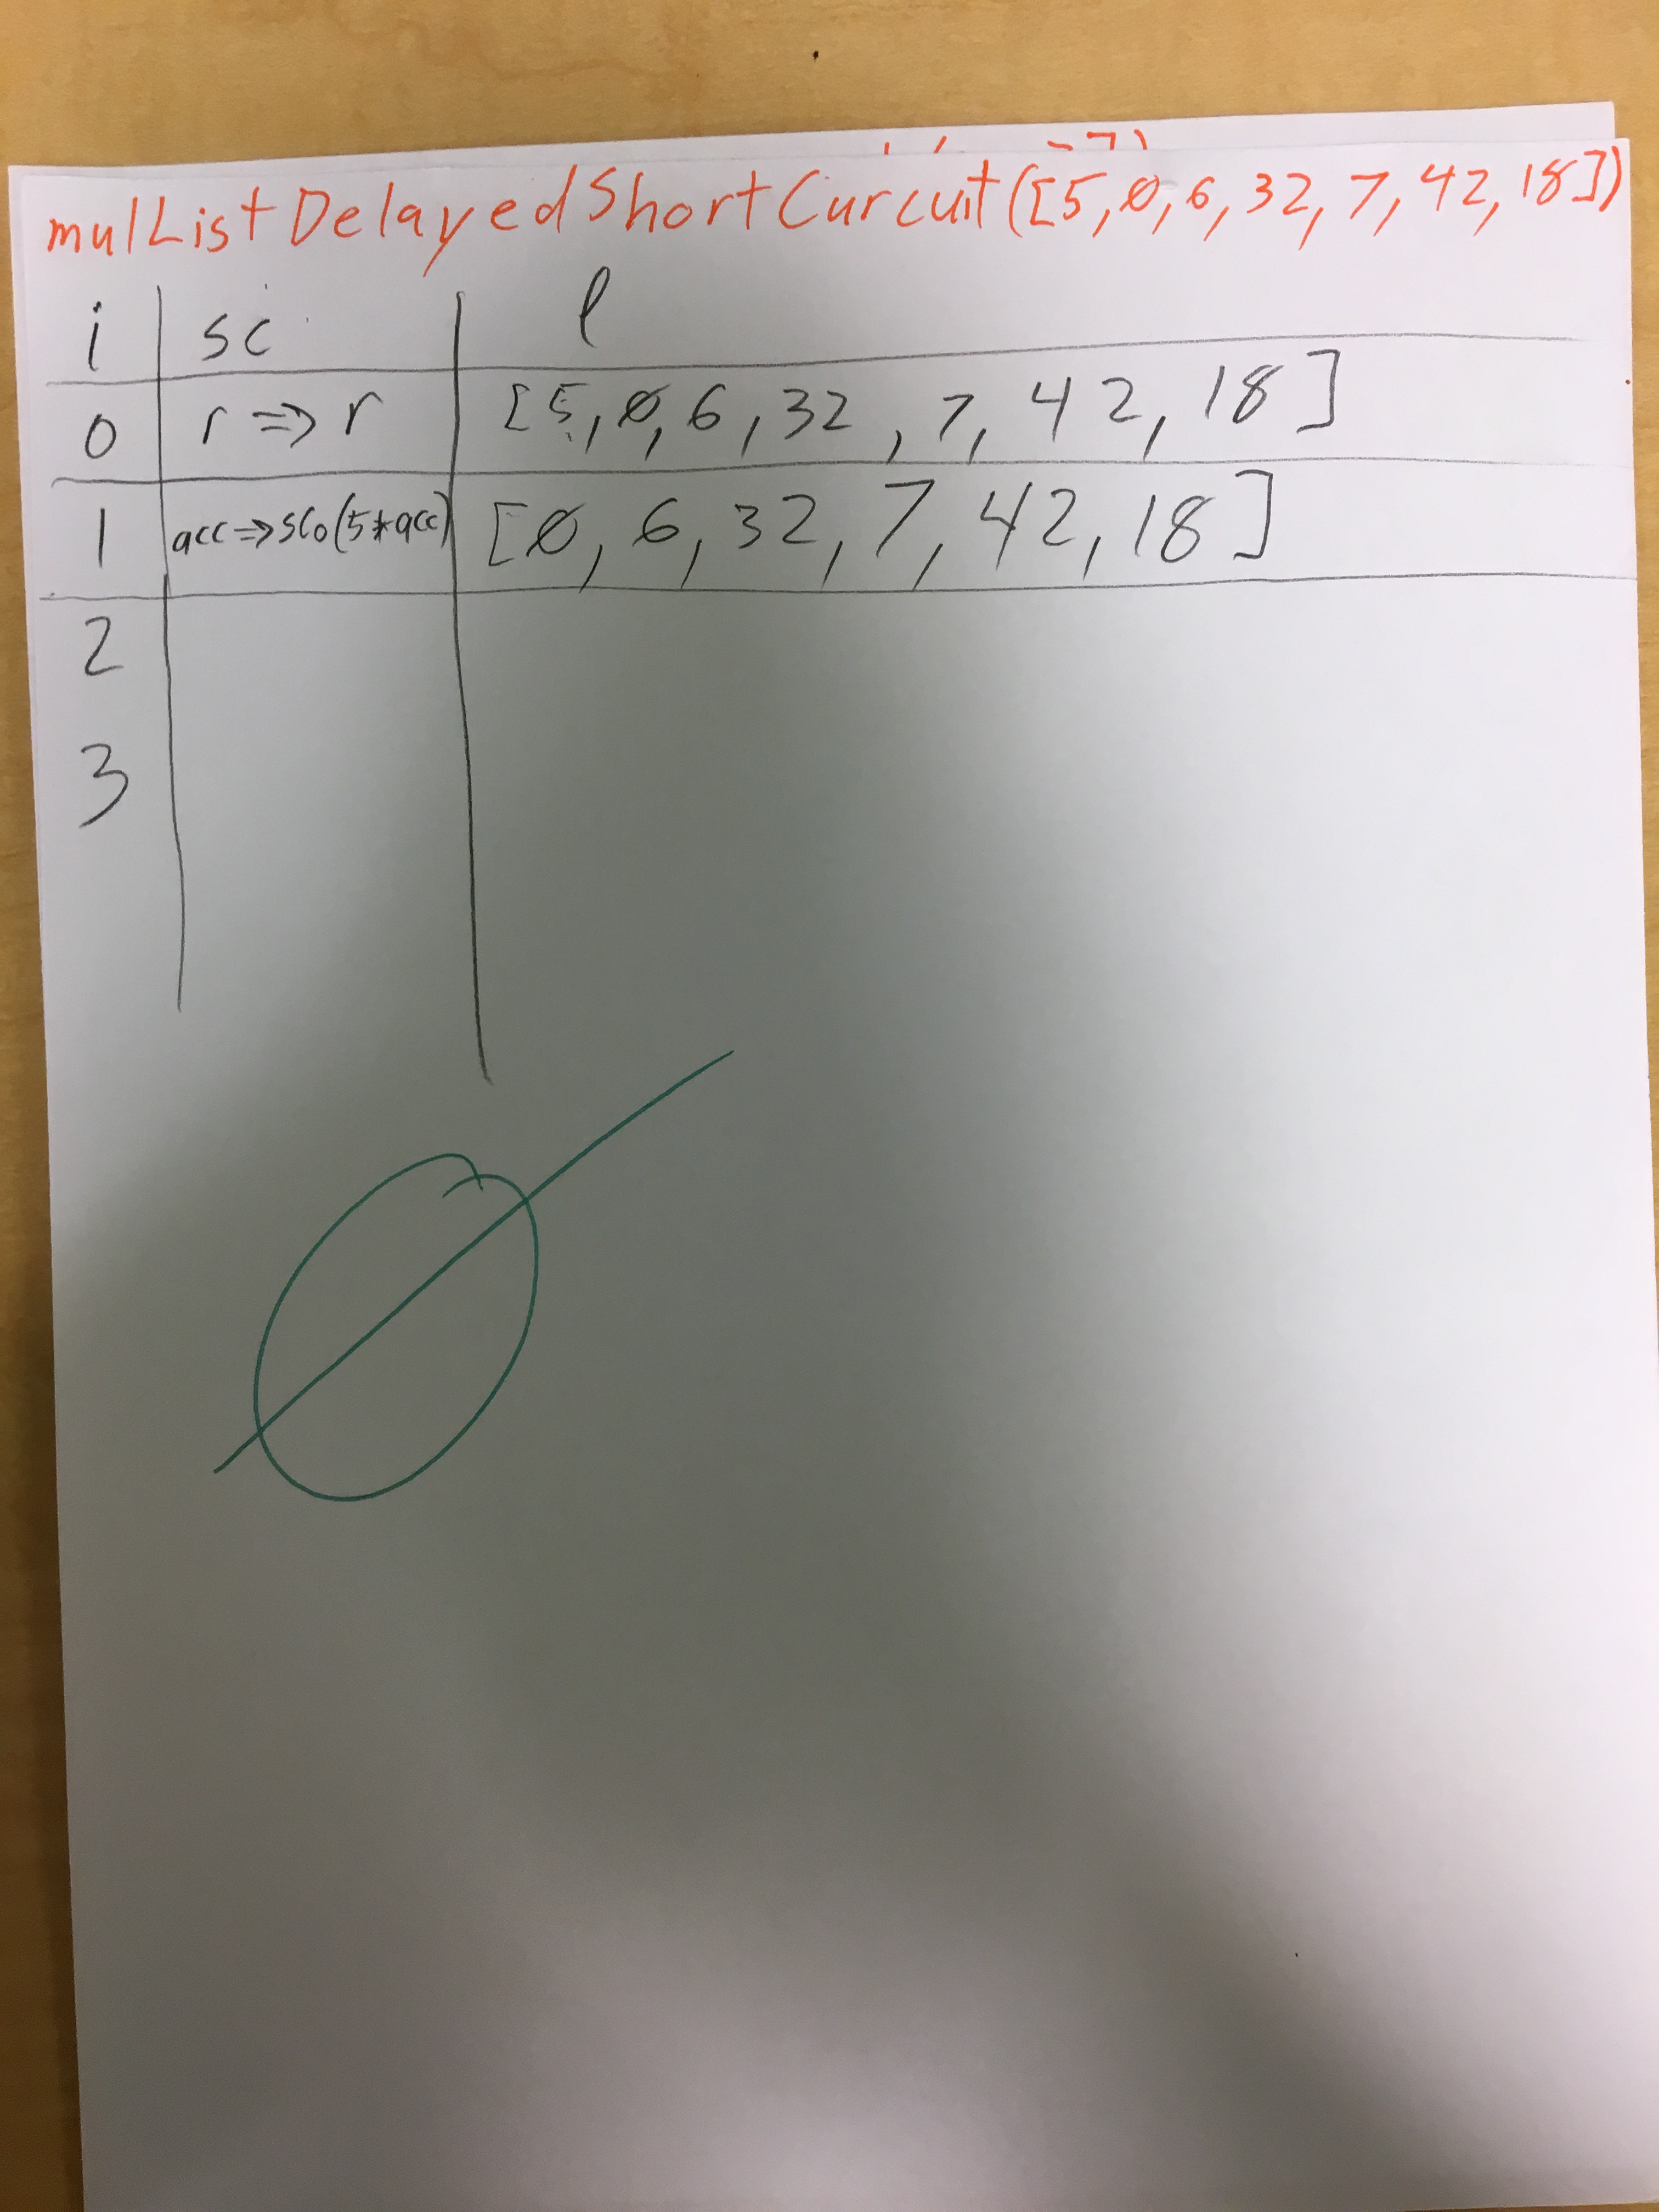 mulListDelayedShortCurcuit([5,0,6,32,7,42,18])
i sc l
0 r => r [5,0,6,32,7,42,18]
1 acc=>sc0(5*acc) [0,6,32,7,42,18]
2
3
0